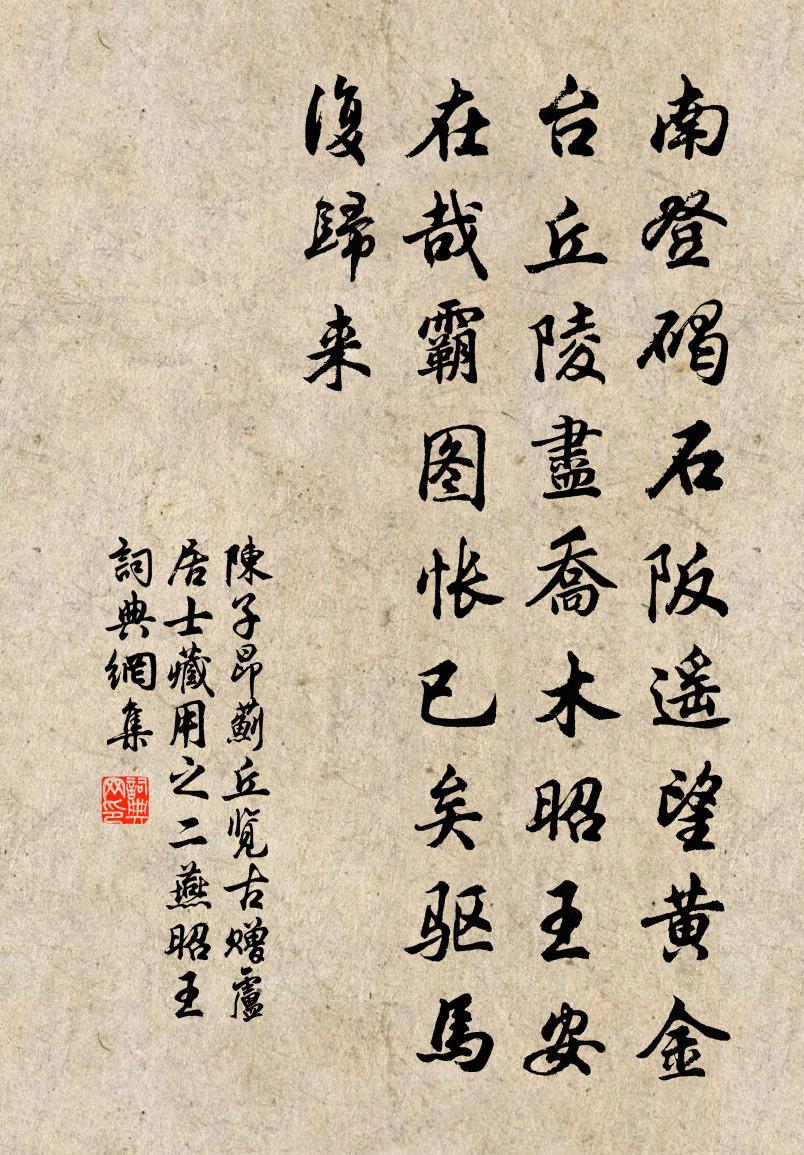 南登碣石阪遥望黄金
台丘陵盡喬木昭王安
在哉霸图怅已矣驱馬
復歸来
陳子昂薊丘览古赠盧
居士藏用之二燕昭王
詞典網集
詞典网印